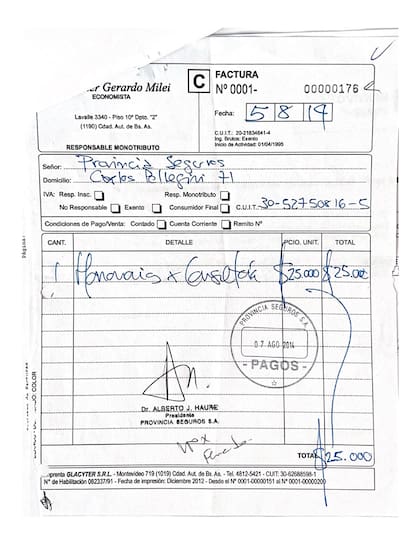 er Gerardo Milei
ECONOMISTA
Lavalle 3340 - Piso 10º Dpto. "2"
(1190) Cdad. Aut. de Bs. As.
RESPONSABLE MONOTRIBUTO
C
FACTURA
Nº 0001- 00000176
Fecha: 5 8 14
C.U.I.T.: 20-21834841-4
Ing. Brutos: Exento
Inicio de Actividad: 01/04/1995
Señor: Provincia Seguros
Domicilio: Carlos Pellegrini 71
IVA: Resp. Insc. Resp. Monotributo
No Responsable Exento Consumidor Final C.U.I.T. 30-52750816-5
Condiciones de Pago/Venta: Contado Cuenta Corriente Remito Nº
CANT. DETALLE PCIO. UNIT. TOTAL
1 Honorarios x $25.000 $25.000
PROVINCIA SEGUROS S.A.
07 AGO 2014
- PAGOS -
Dr. ALBERTO J. HAURE
Presidente
PROVINCIA SEGUROS S.A.
TOTAL $25.000
mprenta GLACYTER S.R.L. - Montevideo 719 (1019) Cdad. Aut. de Bs. As. - Tel. 4812-5421 - CUIT: 30-62688598-1
N° de Habilitación 082337/91 - Fecha de impresión: Diciembre 2012 - Desde el Nº 0001-00000151 al Nº 0001-00000200